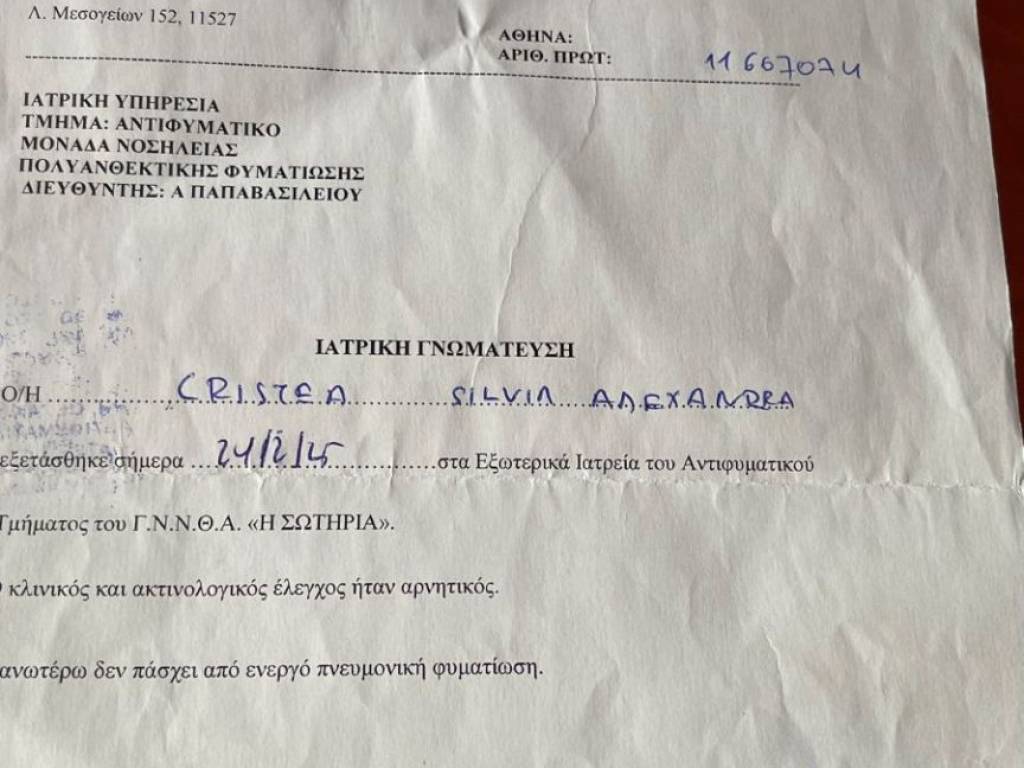 Λ. Μεσογείων 152, 11527
ΑΘΗΝΑ:
ΑΡΙΘ. ΠΡΩΤ: 11667074
ΙΑΤΡΙΚΗ ΥΠΗΡΕΣΙΑ
ΤΜΗΜΑ: ΑΝΤΙΦΥΜΑΤΙΚΟ
ΜΟΝΑΔΑ ΝΟΣΗΛΕΙΑΣ
ΠΟΛΥΑΝΘΕΚΤΙΚΗΣ ΦΥΜΑΤΙΩΣΗΣ
ΔΙΕΥΘΥΝΤΗΣ: Α ΠΑΠΑΒΑΣΙΛΕΙΟΥ
ΙΑΤΡΙΚΗ ΓΝΩΜΑΤΕΥΣΗ
Ο/Η CRISTEA SILVIA
εξετάσθηκε σήμερα 24/2/25 στα Εξωτερικά Ιατρεία του Αντιφυματικού
Τμήματος του Γ.Ν.Ν.Θ.Α. «Η ΣΩΤΗΡΙΑ».
κλινικός και ακτινολογικός έλεγχος ήταν αρνητικός.
ανωτέρω δεν πάσχει από ενεργό πνευμονική φυματίωση.